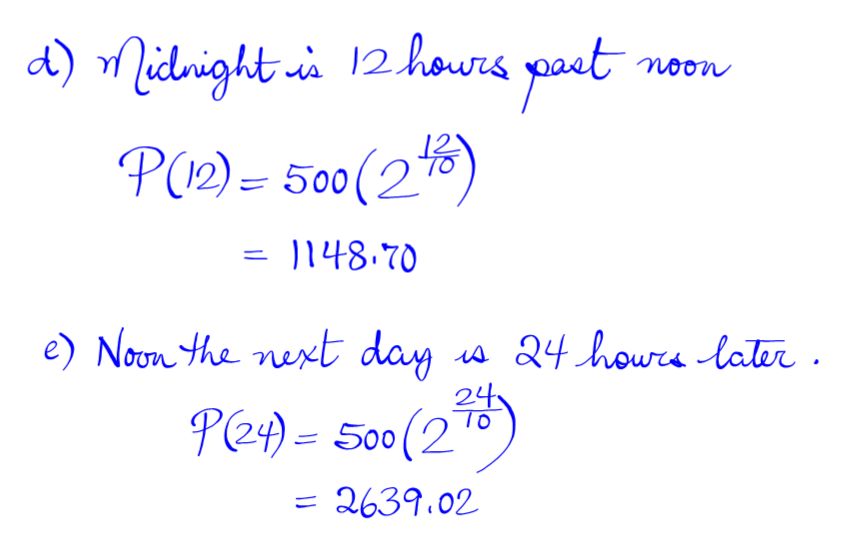 d) Midnight is 12 hours past noon
P(12) = 500(2^{12/10})
= 1148.70
e) Noon the next day is 24 hours later.
P(24) = 500(2^{24/10})
= 2639.02